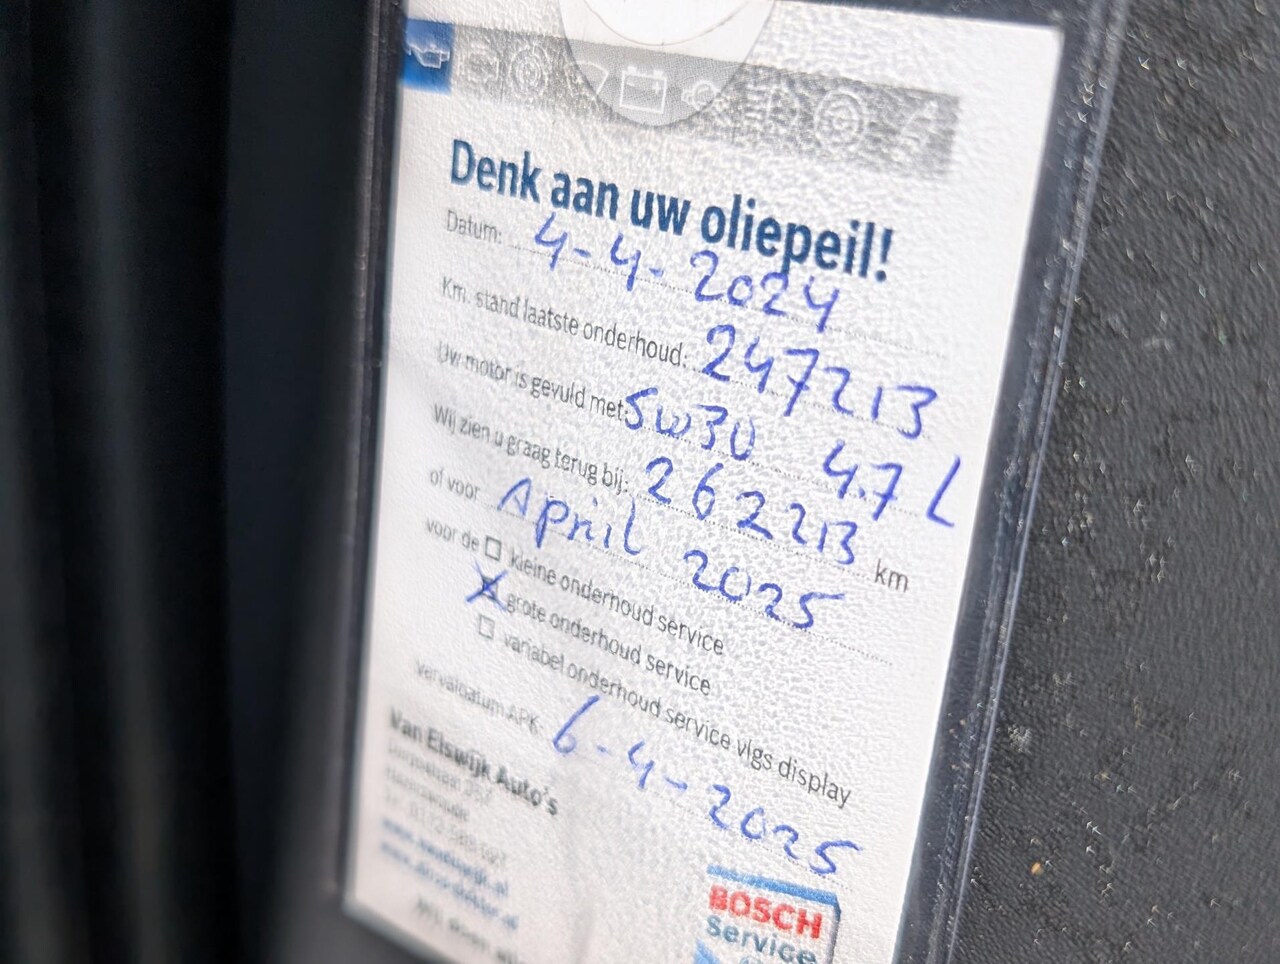 Denk aan uw oliepeil!
Datum: 4-4-2024
Km. stand laatste onderhoud: 247213
Uw motor is gevuld met: 5W30 4.7 L
Wij zien u graag terug bij: 262213 km
of voor April 2025
voor de ☐ kleine onderhoud service
☒ grote onderhoud service
☐ variabel onderhoud service vlgs display
Vervaldatum APK: 6-4-2025
Van Elswijk Auto's
BOSCH
Service